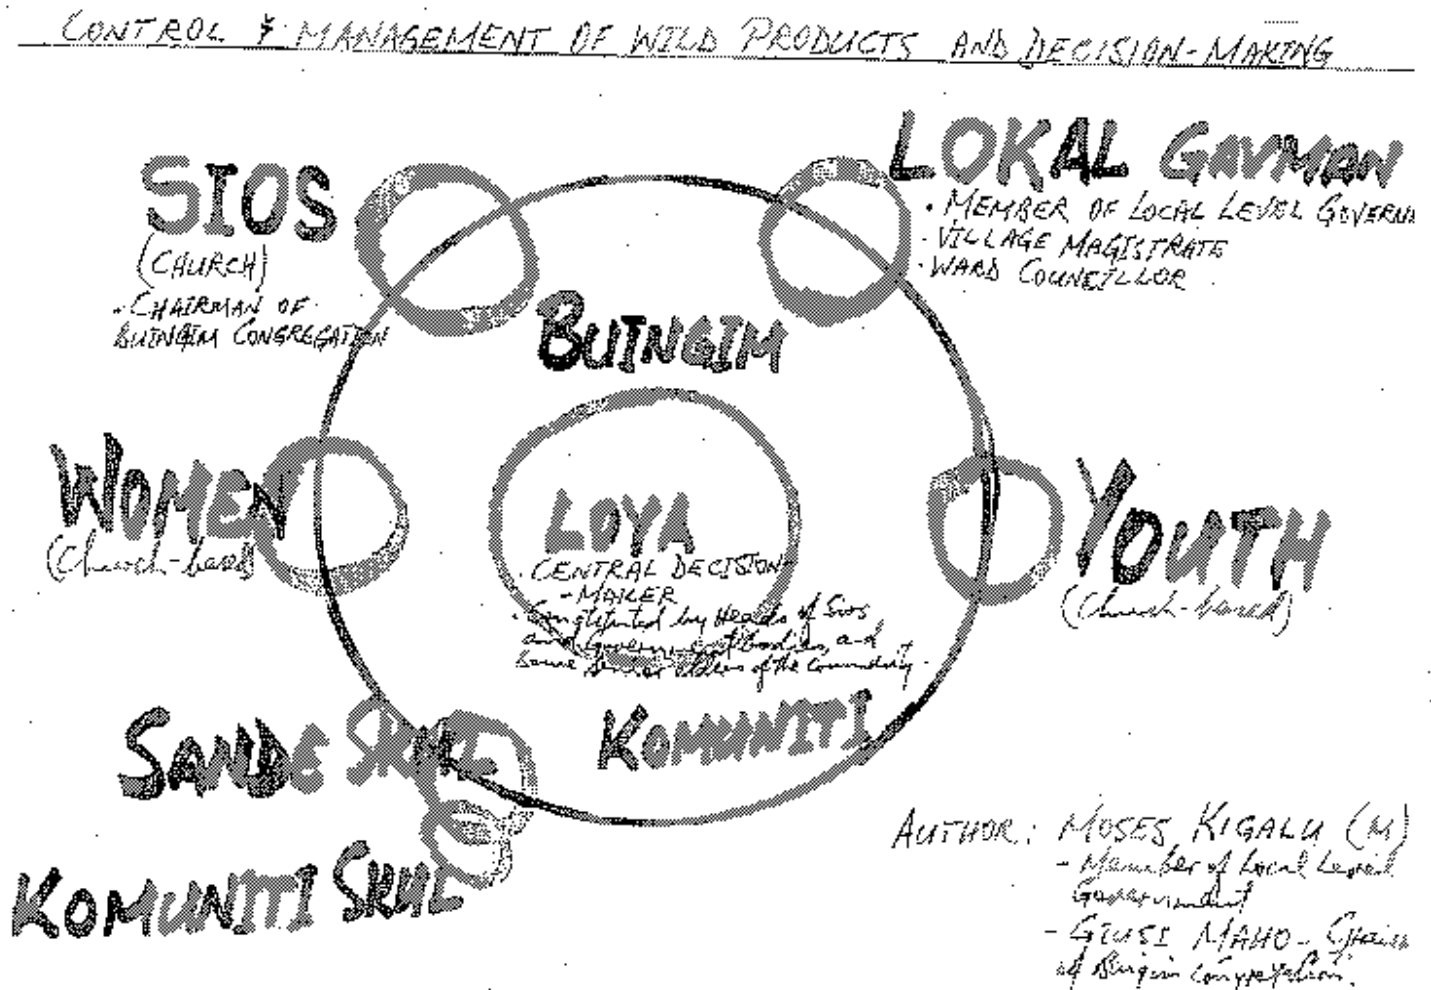 CONTROL & MANAGEMENT OF WILD PRODUCTS AND DECISION-MAKING
SIOS
(CHURCH)
- CHAIRMAN OF
BUINGIM CONGREGATION
LOKAL GAVMAN
• MEMBER OF LOCAL LEVEL GOVERN
- VILLAGE MAGISTRATE
- WARD COUNCILLOR
BUINGIM
WOMEN
(Church-based)
LOYA
• CENTRAL DECISION-
- MAKER
• Constituted by Heads of Sios
and Government bodies, and
some senior elders of the Community.
YOUTH
(Church-based)
KOMUNITI
SANDE SKUL
KOMUNITI SKUL
AUTHOR: MOSES KIGALU (M)
- Member of Local Level
Government
- GIUSI MAHO -
of Buingim Congregation.